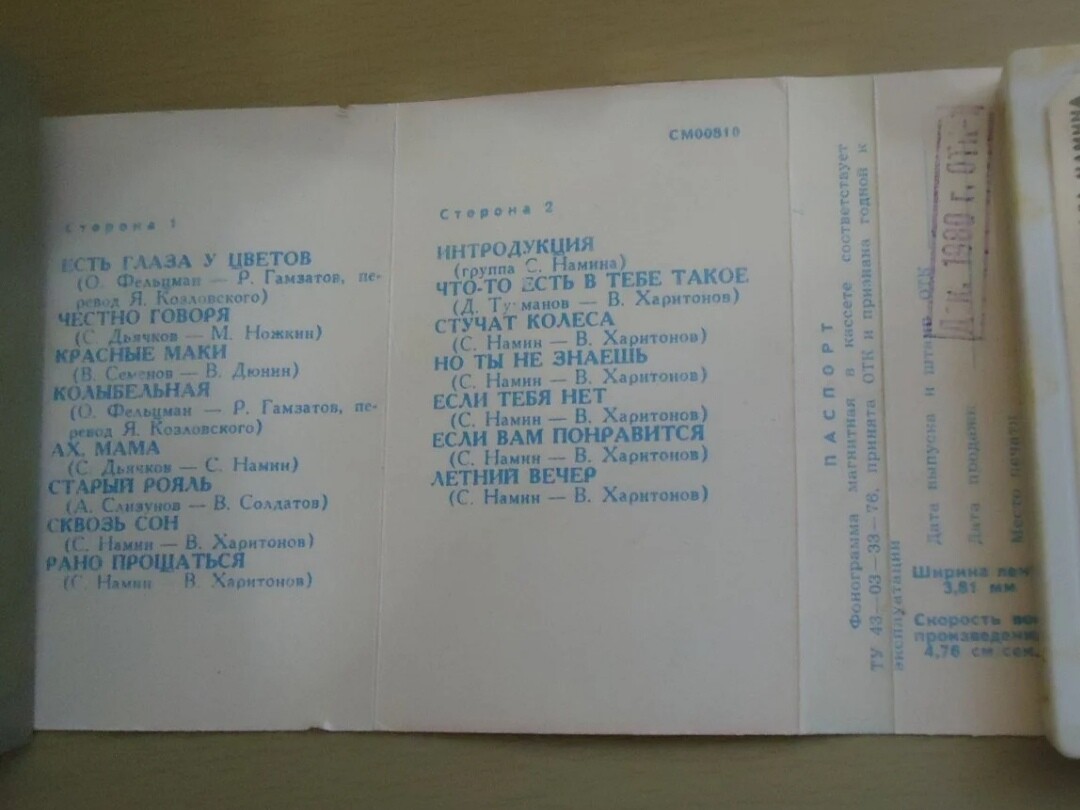 Сторона 1
ЕСТЬ ГЛАЗА У ЦВЕТОВ
(О. Фельцман — Р. Гамзатов, пе-
ревод Я. Козловского)
ЧЕСТНО ГОВОРЯ
(С. Дьячков — М. Ножкин)
КРАСНЫЕ МАКИ
(В. Семенов — В. Дюнин)
КОЛЫБЕЛЬНАЯ
(О. Фельцман — Р. Гамзатов, пе-
ревод Я. Козловского)
АХ, МАМА
(С. Дьячков — С. Намин)
СТАРЫЙ РОЯЛЬ
(А. Слизунов — В. Солдатов)
СКВОЗЬ СОН
(С. Намин — В. Харитонов)
РАНО ПРОЩАТЬСЯ
(С. Намин — В. Харитонов)
СМ00810
Сторона 2
ИНТРОДУКЦИЯ
(группа С. Намина)
ЧТО-ТО ЕСТЬ В ТЕБЕ ТАКОЕ
(Д. Тухманов — В. Харитонов)
СТУЧАТ КОЛЕСА
(С. Намин — В. Харитонов)
НО ТЫ НЕ ЗНАЕШЬ
(С. Намин — В. Харитонов)
ЕСЛИ ТЕБЯ НЕТ
(С. Намин — В. Харитонов)
ЕСЛИ ВАМ ПОНРАВИТСЯ
(С. Намин — В. Харитонов)
ЛЕТНИЙ ВЕЧЕР
(С. Намин — В. Харитонов)
ПАСПОРТ
Фонограмма магнитная в кассете соответствует
ТУ 43—03—33—76, принята ОТК и признана годной к
эксплуатации
Дата выпуска и штамп ОТК
1980 г. ОТК
Дата продажи
Место печати
Ширина лен
3,81 мм
Скорость вос
произведени
4,76 см сек.
НАМИНА